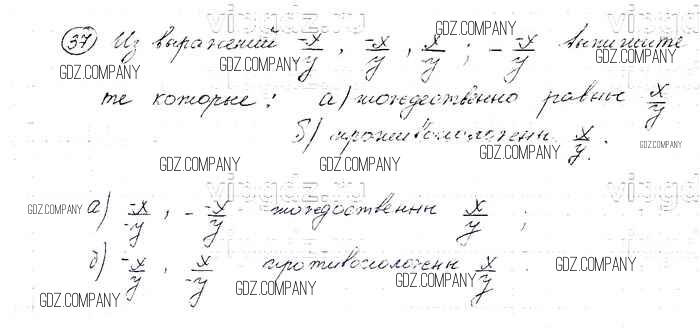 37) Из выражений -x/y, -x/y, x/y; - -x/y выпишите
те которые: а) тождественно равны x/y
б) противоположены x/y.
а) -x/-y, - -x/y тождественны x/y ;
б) -x/y, x/-y противоположены x/y
GDZ.COMPANY
GDZ.COMPANY
GDZ.COMPANY
GDZ.COMPANY
GDZ.COMPANY
GDZ.COMPANY
GDZ.COMPANY
GDZ.COMPANY
GDZ.COMPANY
GDZ.COMPANY
GDZ.COMPANY
GDZ.COMPANY
GDZ.COMPANY
GDZ.COMPANY